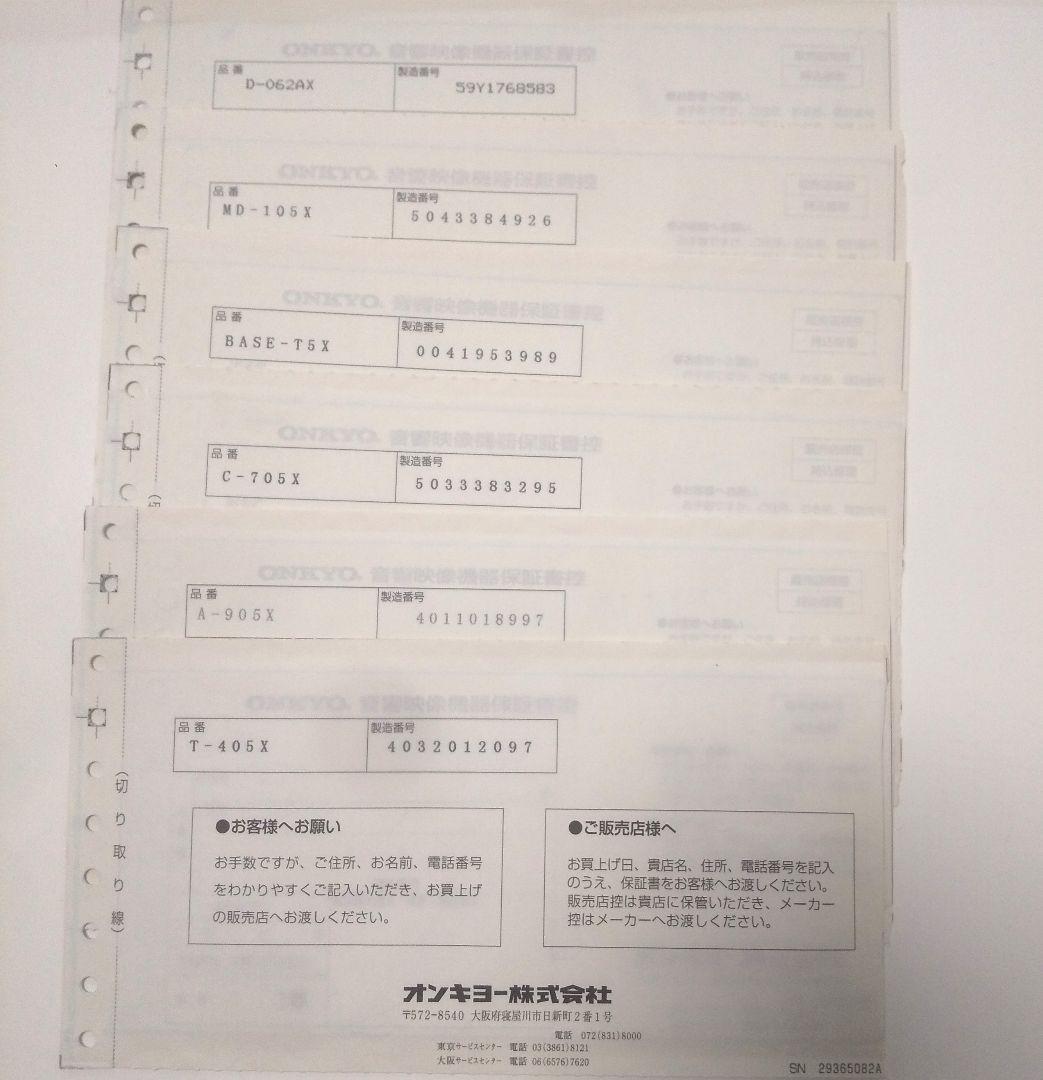 ONKYO 音響映像機器保証書控
品番
D-062AX
製造番号
59Y1768583
ONKYO 音響映像機器保証書控
品番
MD-105X
製造番号
5043384926
ONKYO 音響映像機器保証書控
品番
BASE-T5X
製造番号
0041953989
ONKYO 音響映像機器保証書控
品番
C-705X
製造番号
5033383295
(切
ONKYO 音響映像機器保証書控
品番
A-905X
製造番号
4011018997
ONKYO 音響映像機器保証書控
品番
T-405X
製造番号
4032012097
(切り取り線)
●お客様へお願い
お手数ですが、ご住所、お名前、電話番号
をわかりやすくご記入いただき、お買上げ
の販売店へお渡しください。
●ご販売店様へ
お買上げ日、貴店名、住所、電話番号を記入
のうえ、保証書をお客様へお渡しください。
販売店控は貴店に保管いただき、メーカー
控はメーカーへお渡しください。
オンキヨー株式会社
〒572-8540 大阪府寝屋川市日新町2番1号
電話 072(831)8000
東京サービスセンター 電話 03(3861)8121
大阪サービスセンター 電話 06(6576)7620
SN 29365082A